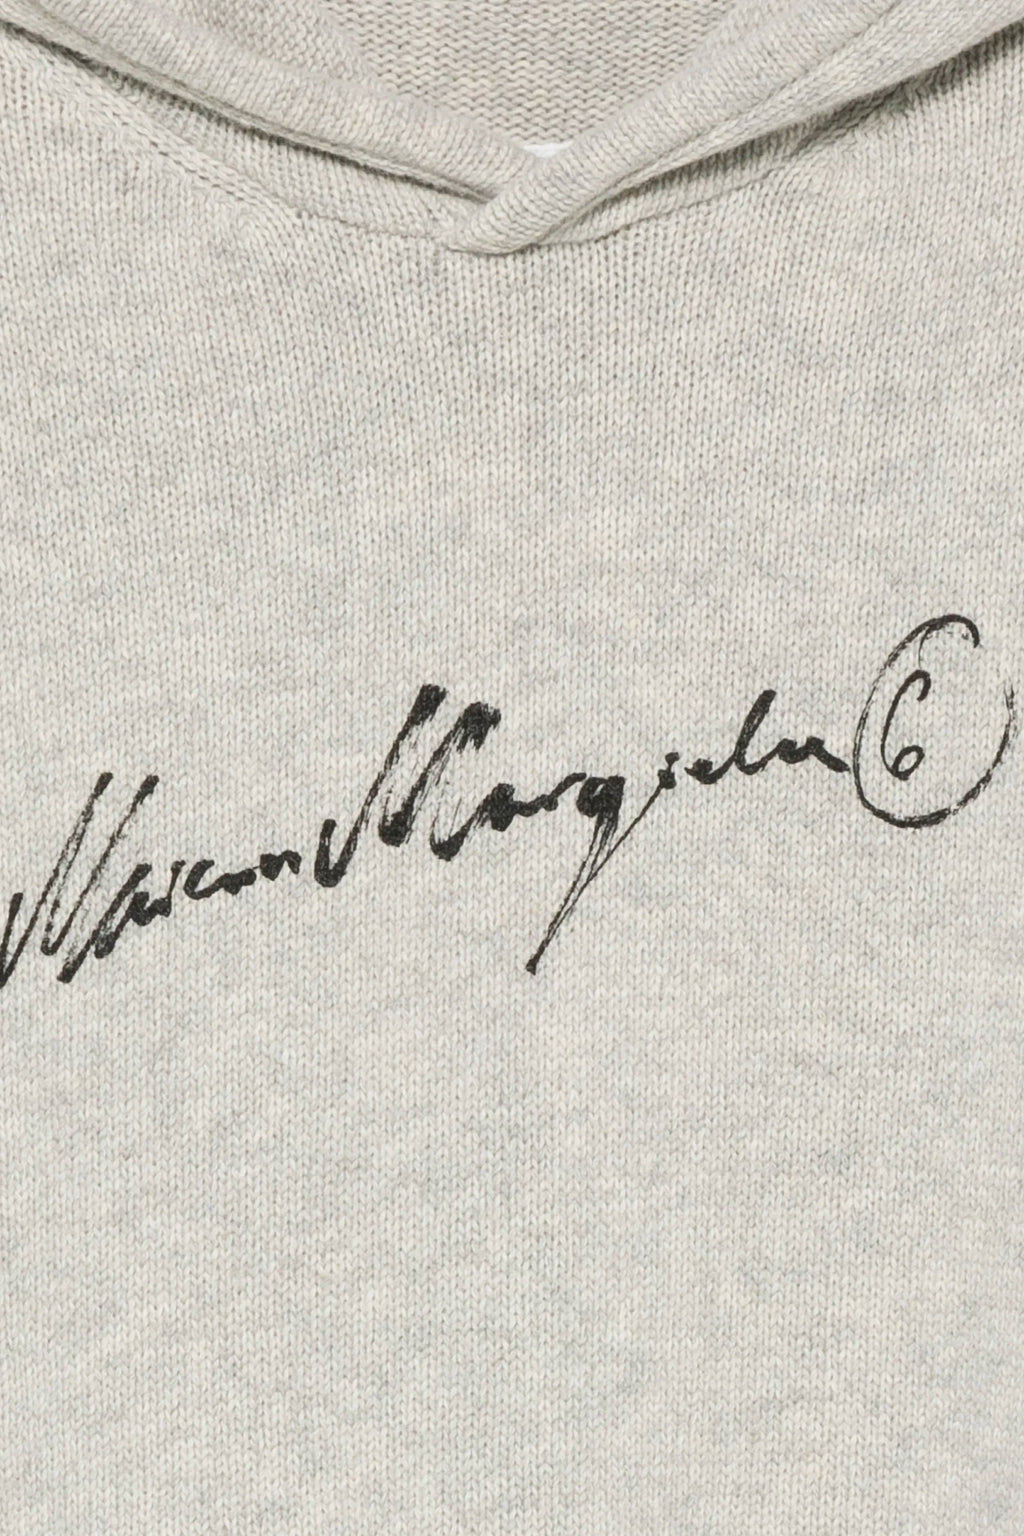 Maison Margiela ⑥